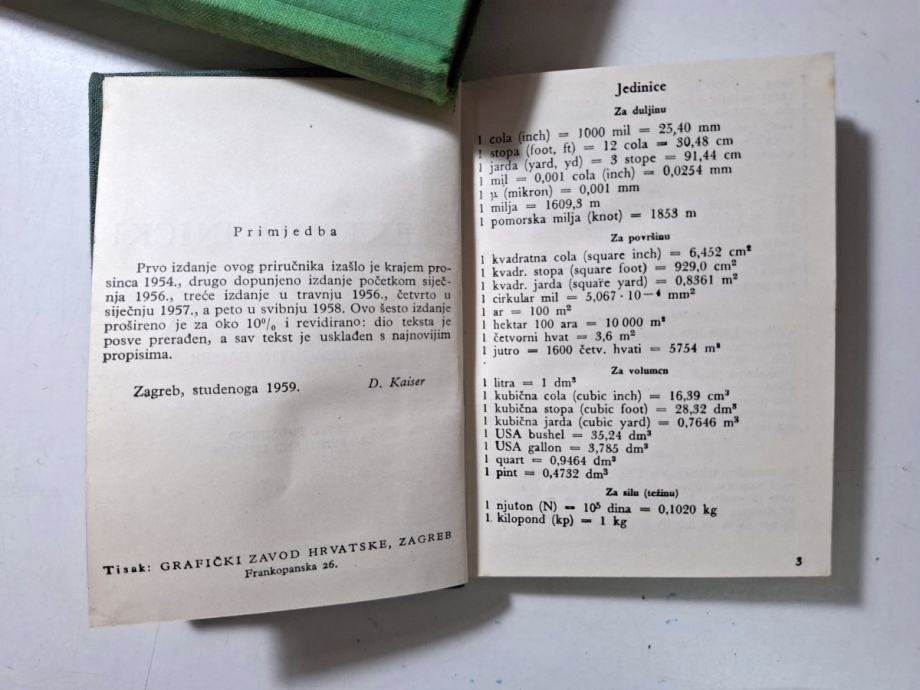 Primjedba
Prvo izdanje ovog priručnika izašlo je krajem pro-
sinca 1954., drugo dopunjeno izdanje početkom siječ-
nja 1956., treće izdanje u travnju 1956., četvrto u
siječnju 1957., a peto u svibnju 1958. Ovo šesto izdanje
prošireno je za oko 10% i revidirano: dio teksta je
posve prerađen, a sav tekst je usklađen s najnovijim
propisima.
Zagreb, studenoga 1959. D. Kaiser
Tisak: GRAFIČKI ZAVOD HRVATSKE, ZAGREB
Frankopanska 26.
Jedinice
Za duljinu
1 cola (inch) = 1000 mil = 25,40 mm
1 stopa (foot, ft) = 12 cola = 30,48 cm
1 jarda (yard, yd) = 3 stope = 91,44 cm
1 mil = 0,001 cola (inch) = 0,0254 mm
1 µ (mikron) = 0,001 mm
1 milja = 1609,3 m
1 pomorska milja (knot) = 1853 m
Za površinu
1 kvadratna cola (square inch) = 6,452 cm²
1 kvadr. stopa (square foot) = 929,0 cm²
1 kvadr. jarda (square yard) = 0,8361 m²
1 cirkular mil = 5,067 · 10⁻⁴ mm²
1 ar = 100 m²
1 hektar 100 ara = 10 000 m²
1 četvorni hvat = 3,6 m²
1 jutro = 1600 četv. hvati = 5754 m²
Za volumen
1 litra = 1 dm³
1 kubična cola (cubic inch) = 16,39 cm³
1 kubična stopa (cubic foot) = 28,32 dm³
1 kubična jarda (cubic yard) = 0,7646 m³
1 USA bushel = 35,24 dm³
1 USA gallon = 3,785 dm³
1 quart = 0,9464 dm³
1 pint = 0,4732 dm³
Za silu (težinu)
1 njuton (N) = 10⁵ dina = 0,1020 kg
1. kilopond (kp) = 1 kg
3